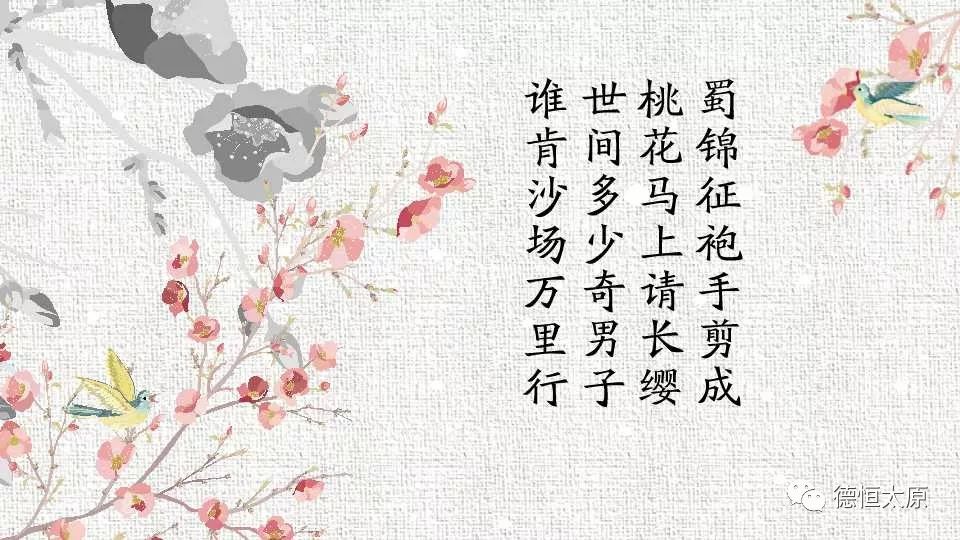 蜀锦征袍手剪成
桃花马上请长缨
世间多少奇男子
谁肯沙场万里行
德恒太原